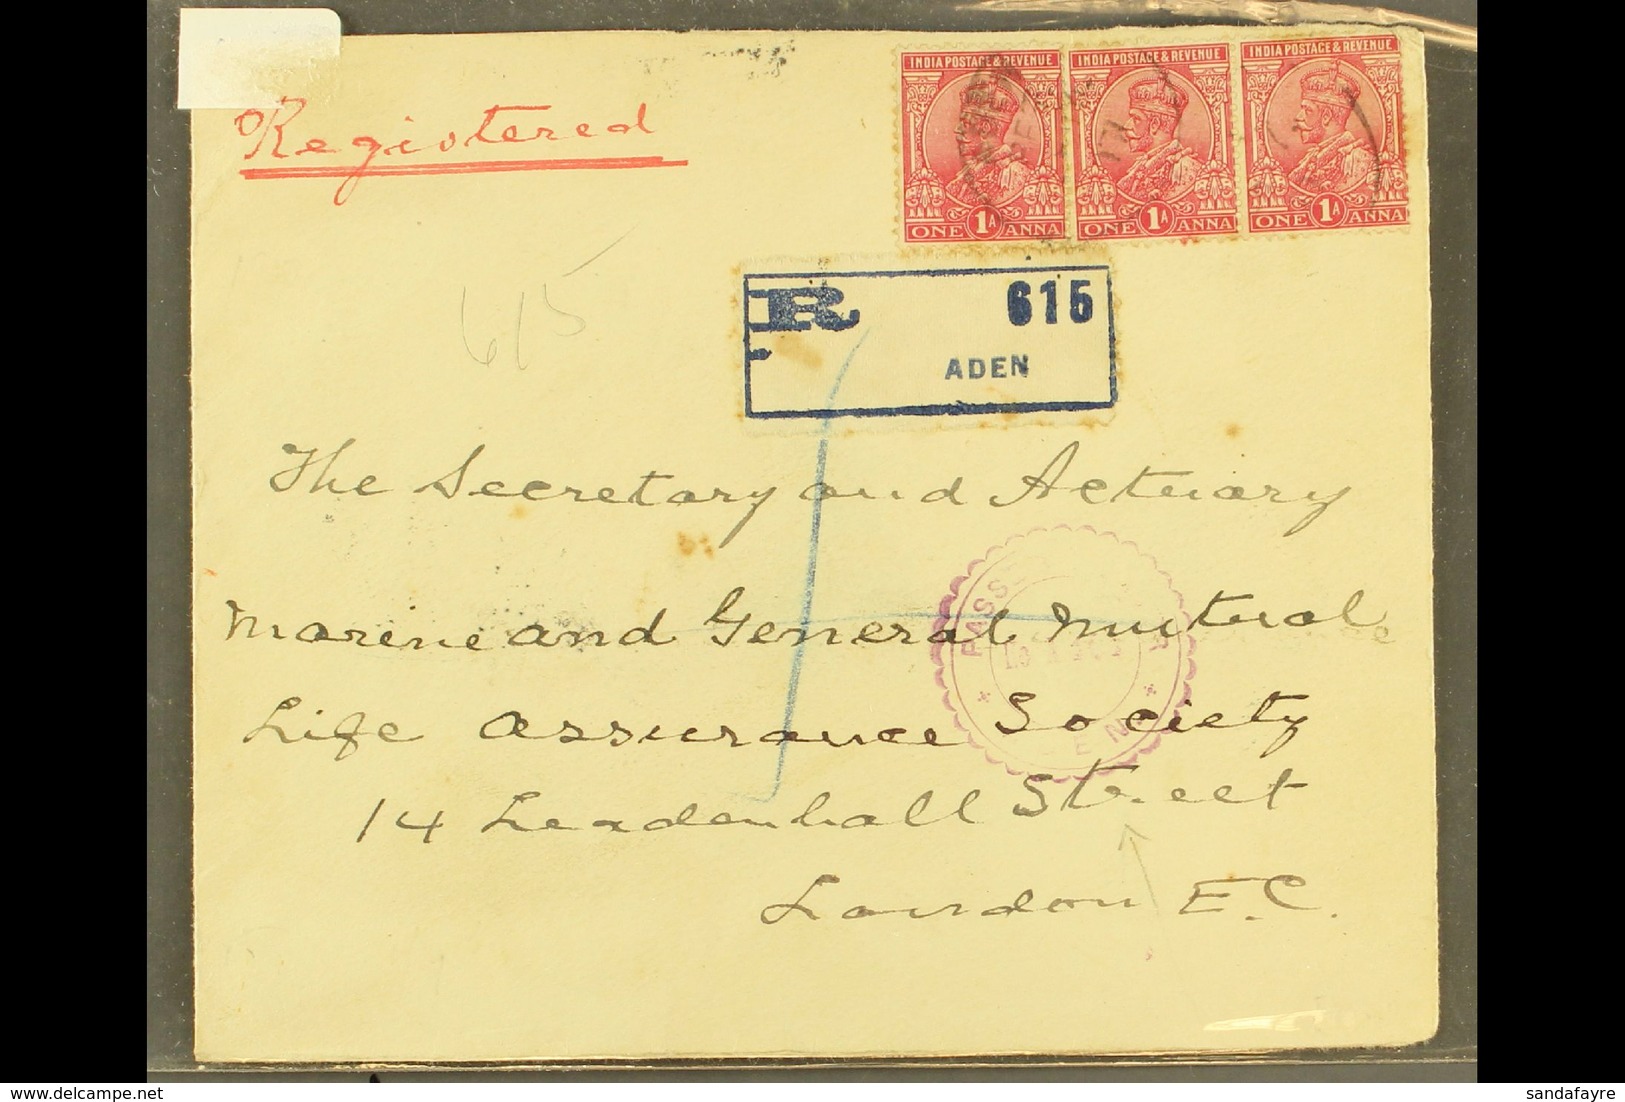 Registered
INDIA POSTAGE & REVENUE
INDIA POSTAGE & REVENUE
INDIA POSTAGE & REVENUE
ONE 1A ANNA
ONE 1A ANNA
ONE 1A ANNA
R 615
ADEN
615
The Secretary and Actuary
Marine and General Mutual
Life Assurance Society
14 Leadenhall Street
London E.C.
sandafayre.com